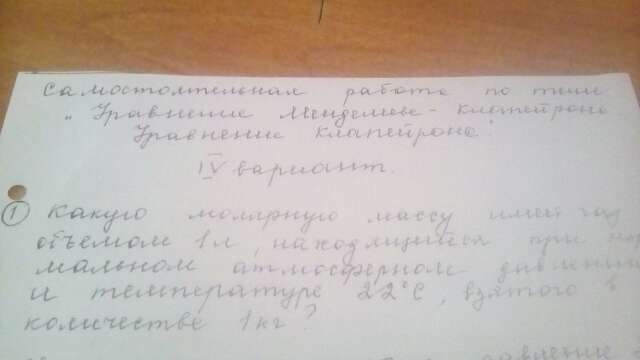 Самостоятельная работа по теме
„Уравнение Менделеева - Клапейрона
Уравнение Клапейрона".
IV вариант.
① Какую молярную массу имеет газ
объемом 1 л, находящийся при нор
мальном атмосферном давлении
и температуре 22°С, взятого в
количестве 1 кг?